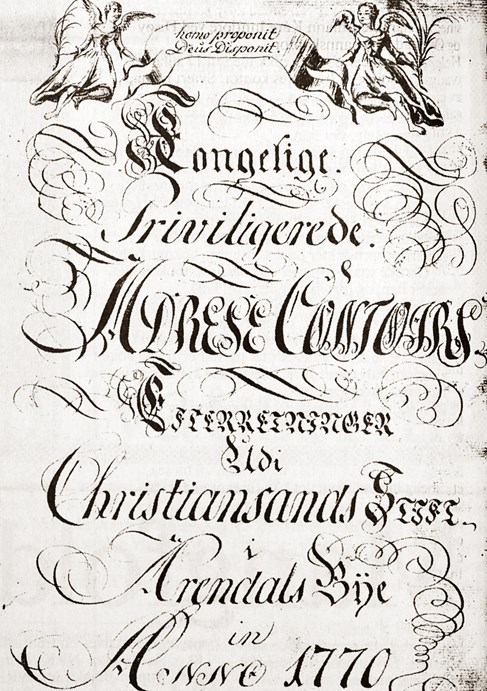 homo proponit
Deus Disponit.
Kongelige.
Priviligerede.
ADRESE CONTOIRS.
EFTERRETNINGER
Udi
Christiansands STIFT.
i
Arendals Bÿe
in
ANNO 1770